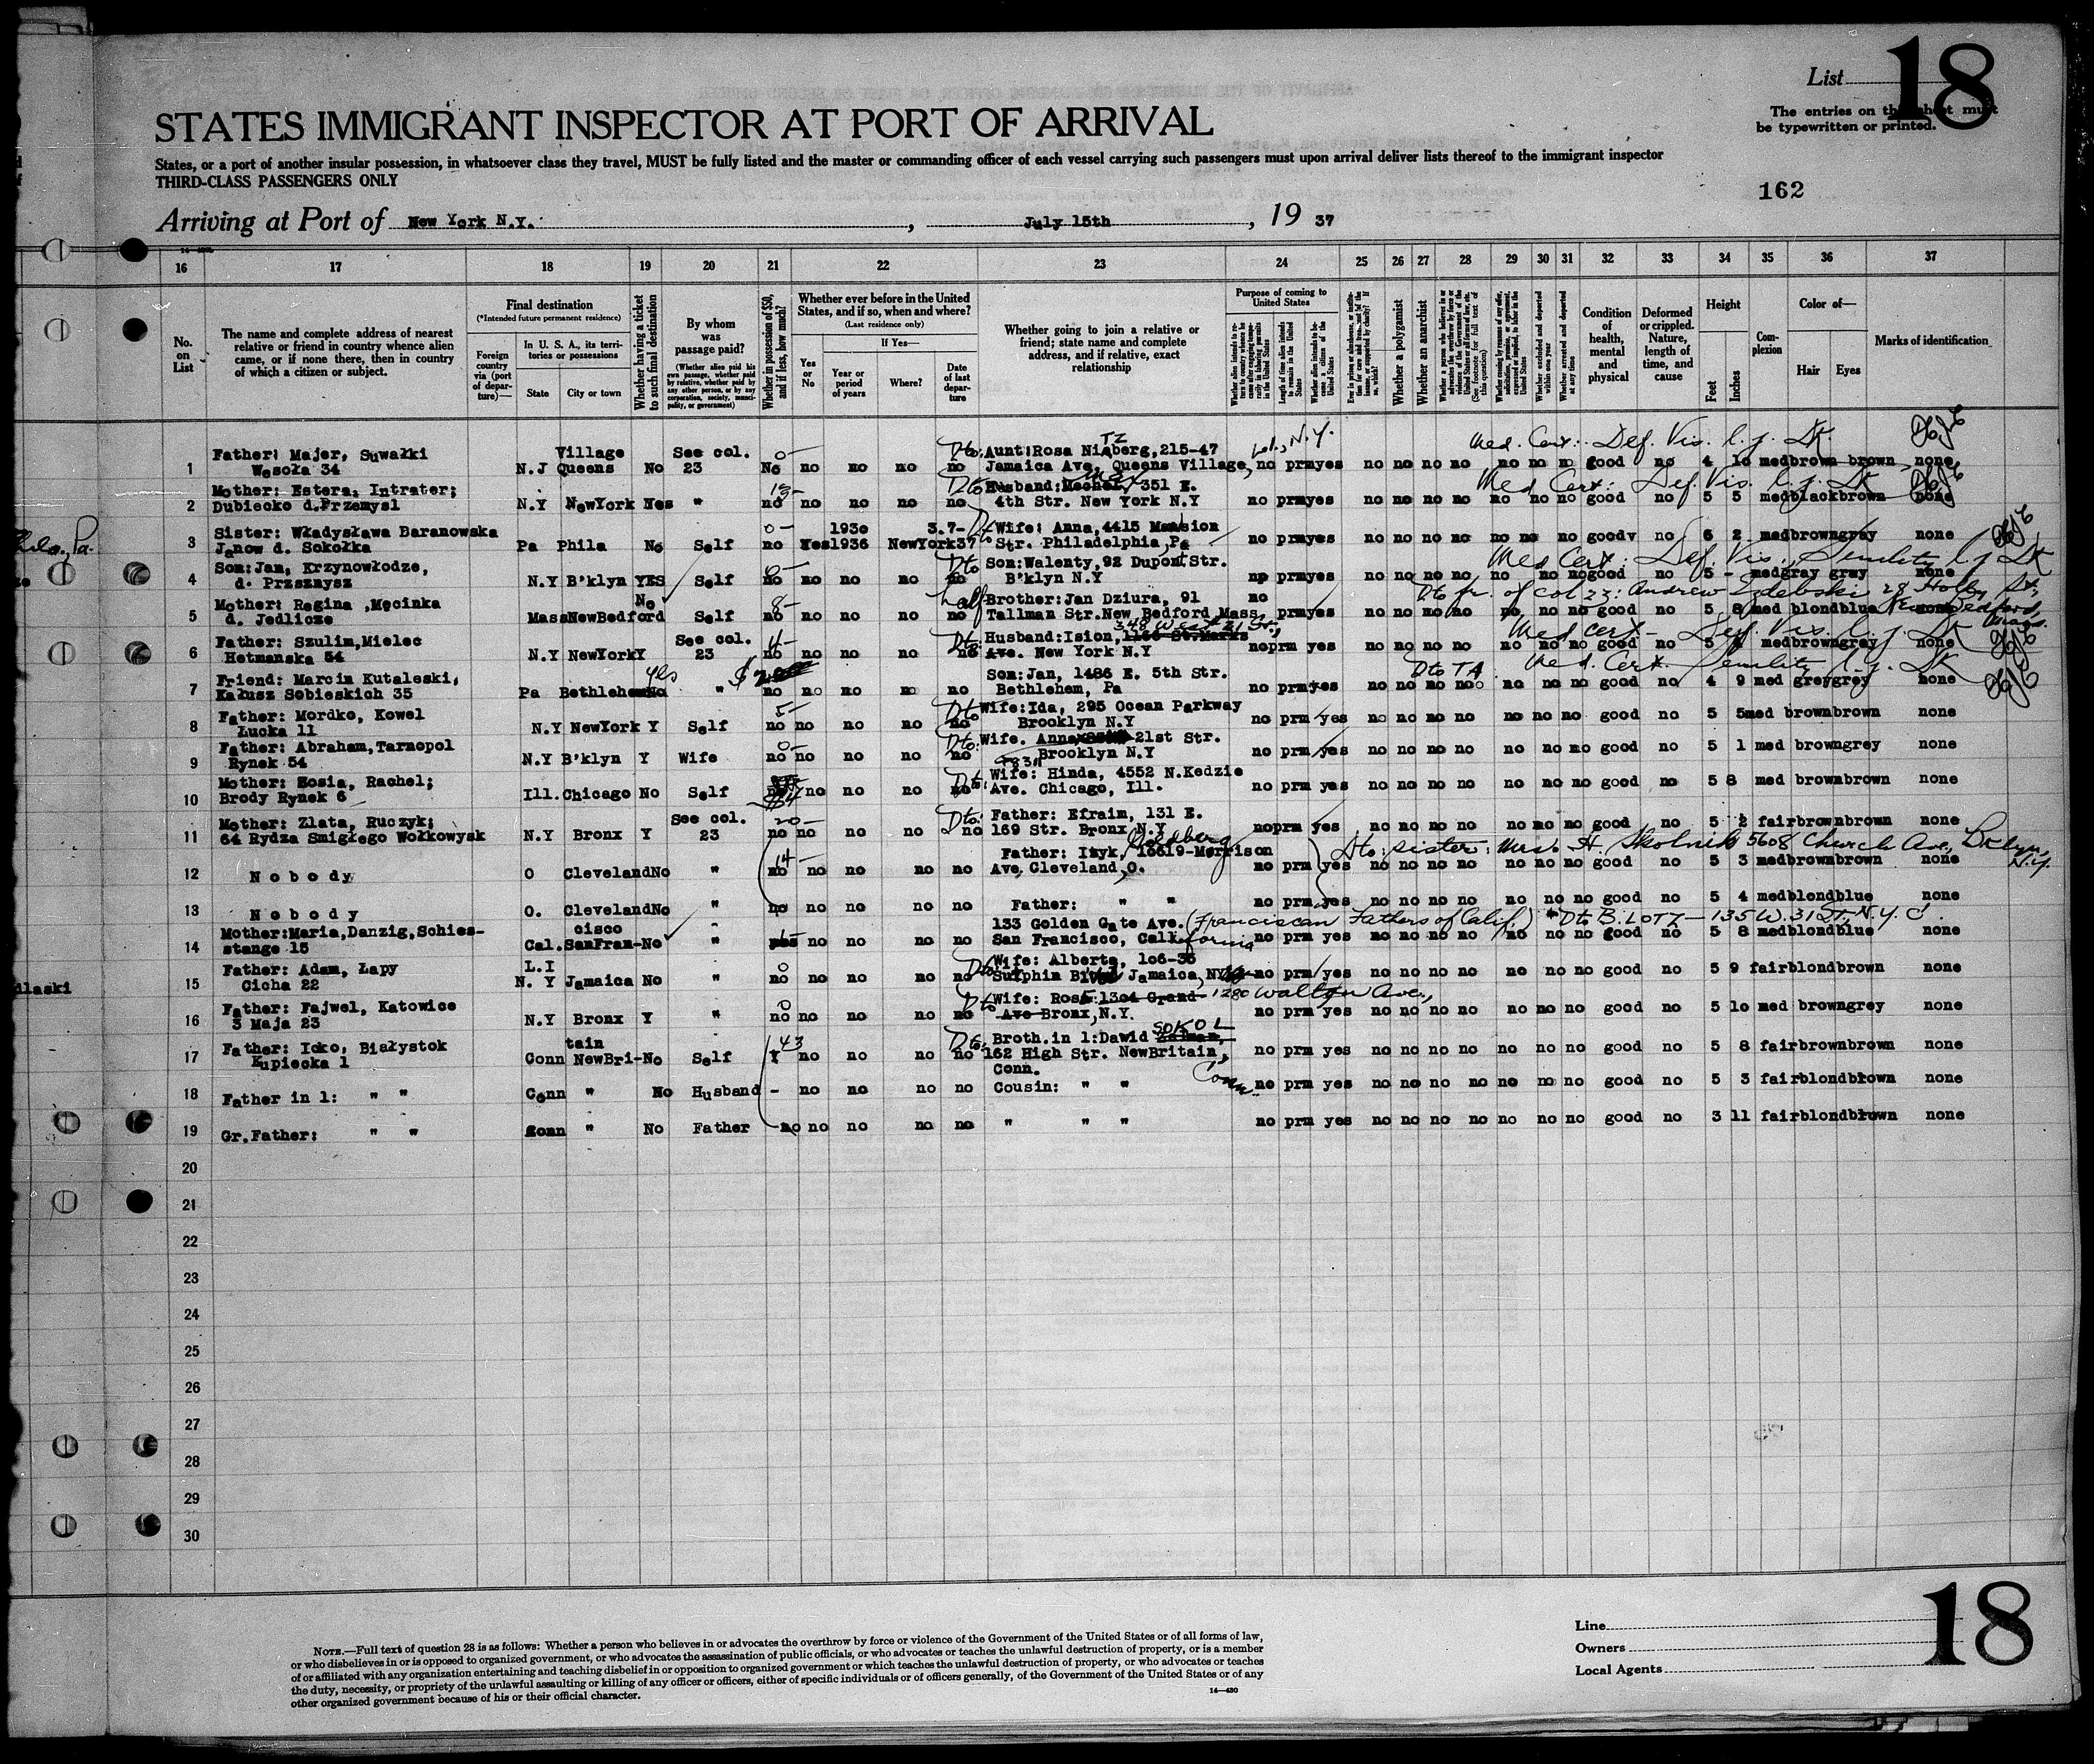 List 18
The entries on this sheet must
be typewritten or printed.
STATES IMMIGRANT INSPECTOR AT PORT OF ARRIVAL
States, or a port of another insular possession, in whatsoever class they travel, MUST be fully listed and the master or commanding officer of each vessel carrying such passengers must upon arrival deliver lists thereof to the immigrant inspector
THIRD-CLASS PASSENGERS ONLY
162
Arriving at Port of New York N.Y. , July 15th , 19 37
16 17 18 19 20 21 22 23 24 25 26 27 28 29 30 31 32 33 34 35 36 37
No. on List
The name and complete address of nearest relative or friend in country whence alien came, or if none there, then in country of which a citizen or subject.
Final destination
(*Intended future permanent residence)
Foreign country via (port of departure)—
In U. S. A., its territories or possessions
State City or town
Whether having a ticket to such final destination
By whom was passage paid?
(Whether alien paid his own passage, whether paid by relative, whether paid by any other person, or by any corporation, society, municipality, or government)
Whether in possession of $50, and if less, how much?
Whether ever before in the United States, and if so, when and where?
(Last residence only)
Yes or No
If Yes—
Year or period of years
Where?
Date of last departure
Whether going to join a relative or friend; state name and complete address, and if relative, exact relationship
Purpose of coming to United States
Length of time alien intends to remain in the United States
Whether alien intends to become a citizen of the United States
Whether a polygamist
Whether an anarchist
Condition of health, mental and physical
Deformed or crippled. Nature, length of time, and cause
Height
Feet Inches
Complexion
Color of—
Hair Eyes
Marks of identification
Med. Cert: Def. Vis.
1 Father: Majer, Suwałki
Wesoła 34 N.J Village Queens No See col. 23 0— No no no no no Aunt:Rosa Niaberg,215-47 TZ
Jamaica Ave, Queens Village, no prm yes no no no no no no no good no 4 10 med brown brown none
Med Cert: Def. Vis.
2 Mother: Estera, Intrater;
Dubiecko d.Przemysl N.Y NewYork Yes " 13— no no no no no Husband: 351 E.
4th Str. New York N.Y no prm yes no no no no no no no good no 5 5 med black brown none
3 Sister: Władysława Baranowska
Janow d. Sokołka Pa Phila No Self 0— no Yes 1930 1936 NewYork 3.7-37 Wife: Anna,4415 Mansion
Str. Philadelphia,Pa no prm yes no no no no no no no good no 6 2 med brown gray none
Med Cert: Def. Vis., Senility
4 Son:Jan, Krzynowłodze,
d. Przsznysz N.Y B'klyn YES Self no no no no no Son:Walenty,92 Dupont Str.
B'klyn N.Y no prm yes no no no no no no no good no 5 - med gray gray none
5 Mother: Regina ,Męcinka
d. Jedlicze Mass NewBedford No Self 8— no no no no no half Brother: Jan Dziura, 91
Tallman Str.New Bedford Mass. no prm yes no no no no no no no good no 5 8 med blond blue none
of col 23: Andrew
Bedford, Mass.
Med Cert- Def. Vis.
6 Father: Szulim,Mielec
Hetmanska 54 N.Y NewYork Y See col. 23 4— no no no no no Husband:Ision, 1166 St.Marks
348 West 21 St.,
Ave. New York N.Y no prm yes no no no no no no no good no 5 4 med brown grey none
Dto TA Med. Cert. Senility
7 Friend: Marcin Kutaleski,
Kałusz Sobieskich 35 Pa Bethlehem No yes " no no no no no Son:Jan, 1486 E. 5th Str.
Bethlehem, Pa no prm yes no no no no no no no good no 4 9 med grey grey none
8 Father: Mordko, Kowel
Łucka 11 N.Y NewYork Y Self 5— no no no no no Wife:Ida, 295 Ocean Parkway
Brooklyn N.Y no prm yes no no no no no no no good no 5 5 med brown brown none
9 Father: Abraham,Tarnopol
Rynek 54 N.Y B'klyn Y Wife 0— no no no no no Wife. Anna 21st Str.
Brooklyn N.Y no prm yes no no no no no no no good no 5 1 med brown grey none
10 Mother: Zosia, Rachel;
Brody Rynek 6 Ill. Chicago No Self no no no no Wife: Hinda, 4552 N.Kedzie
Ave. Chicago, Ill. no prm yes no no no no no no no good no 5 8 med brown brown none
11 Mother: Zlata, Ruczyk;
64 Rydza Smigłego Wołkowysk N.Y Bronx Y See col. 23 20— no no no no no Father: Efraim, 131 E.
169 Str. Bronx N.Y no prm yes no no no no no no no good no 5 2 fair brown brown none
Dto: sister: Mrs. H. Skolnik 5608 Church Ave., Bklyn, N.Y.
12 Nobody O Cleveland No " 14— no no no no no Father: Izyk, Goldberg 10619-Morrison
Ave, Cleveland, O. no prm yes no no no no no no no good no 5 3 med brown brown none
13 Nobody O. Cleveland No " no no no no no Father: " " no prm yes no no no no no no no good no 5 4 med blond blue none
14 Mother:Maria,Danzig,Schies-
stange 15 Cal. SanFran-cisco No " yes no no no no 133 Golden Gate Ave. (Franciscan Fathers of Calif.) Dto B. LOTZ — 135 W. 31 St, N.Y.C.
San Francisco, California no prm yes no no no no no no no good no 5 8 med blond blue none
15 Father: Adam, Łapy
Cicha 22 N. Y L.I Jamaica No " 0 no no no no no Wife: Alberta, 106-36
Sutphin Blvd Jamaica, NY no prm yes no no no no no no no good no 5 9 fair blond brown none
16 Father: Fajwel, Katowice
3 Maja 23 N.Y Bronx Y " 0 no no no no no Wife: Rose 1304 Grand 1280 Walton Ave.,
Ave Bronx,N.Y. no prm yes no no no no no no no good no 5 10 med brown grey none
17 Father: Icko, Białystok
Kupiecka 1 Conn NewBri-tain No Self 43 Y no no no no Broth.in l:Dawid SOKOL
162 High Str. NewBritain, Conn. no prm yes no no no no no no no good no 5 8 fair brown brown none
18 Father in l: " " Conn " No Husband - no no no no Cousin: " " Conn. no prm yes no no no no no no no good no 5 3 fair blond brown none
19 Gr.Father: " " Conn " No Father no no no no no " " " no prm yes no no no no no no no good no 3 11 fair blond brown none
20
21
22
23
24
25
26
27
28
29
30
NOTE.—Full text of question 28 is as follows: Whether a person who believes in or advocates the overthrow by force or violence of the Government of the United States or of all forms of law,
or who disbelieves in or is opposed to organized government, or who advocates the assassination of public officials, or who advocates or teaches the unlawful destruction of property, or is a member
of or affiliated with any organization entertaining and teaching disbelief in or opposition to organized government or which teaches the unlawful destruction of property, or who advocates or teaches
the duty, necessity, or propriety of the unlawful assaulting or killing of any officer or officers, either of specific individuals or of officers generally, of the Government of the United States or of any
other organized government because of his or their official character.
14—430
Line
Owners
Local Agents
18